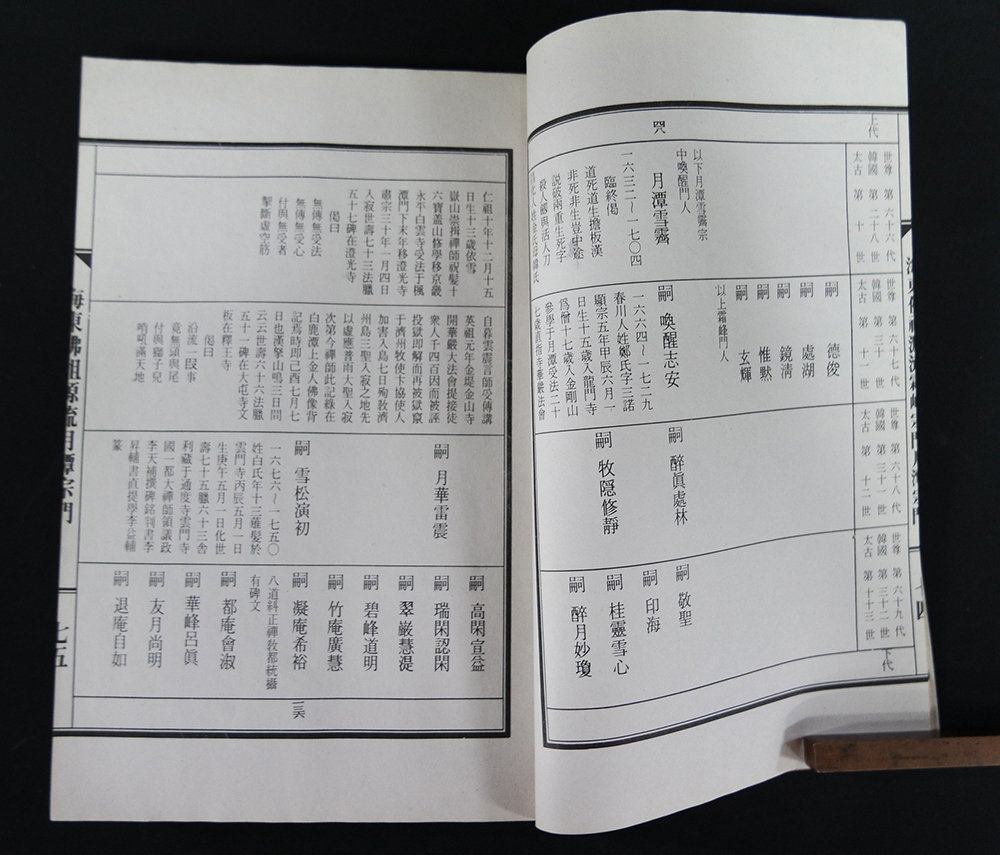 上代
四八
世尊 第 六十六 代
韓國 第 二十八 世
太古 第 十 世
以下月潭雪霽宗
中喚醒門人
月潭雪霽
一六三二～一七〇四
臨終偈
道死道生擔板漢
非死非生豈中途
説破兩重生死字
殺人劒與活人刀
世尊 第 六十七 代
韓國 第 三十 世
太古 第 十一 世
嗣 德俊
嗣 處湖
嗣 鏡淸
嗣 惟黙
嗣 玄輝
以上霜峰門人
嗣 喚醒志安
一六六四～一七二九
春川人姓鄭氏字三諾
顯宗五年甲辰六月一
日生十五歲入龍門寺
爲僧十七歲入金剛山
參學于月潭受法二十
七歲直指寺華嚴法會
世尊 第 六十八 代
韓國 第 三十一 世
太古 第 十二 世
嗣 醉眞處林
嗣 牧隱修靜
世尊 第 六十九 代
韓國 第 三十二 世
太古 第 十三 世
嗣 敬聖
嗣 印海
嗣 桂靈雪心
嗣 醉月妙瓊
下代
七四
仁祖十年十二月十五
日生十三歲依雪
嶽山崇揖禪師祝髮十
六寶蓋山修學移京畿
永平白雲寺受法于楓
潭門下末年移澄光寺
肅宗三十年一月四日
入寂世壽七十三法臘
五十七碑在澄光寺
偈曰
無傳無受法
無傳無受心
付與無受者
掣斷虛空筋
自暮雲震言師受傳講
英祖元年金堤金山寺
開華嚴大法會提接徒
衆人千四百因而被誣
投獄即解而再被獄竄
于濟州牧使卞協使人
加害入島七日殉敎濟
州島三聖入寂之地先
以虛應普雨大聖入寂
次第今禪師此記錄在
白鹿潭上金人佛像背
記焉時即己酉七月七
日也漢拏山鳴三日問
云云世壽六十六法臘
五十一碑在大芚寺文
板在釋王寺
偈曰
沿流一叚事
竟無頭與尾
付與獅子兒
哮吼滿天地
嗣 月華雷震
嗣 雪松演初
一六七六～一七五〇
姓白氏年十三薙髮於
雲門寺丙辰五月一日
生庚午五月一日化世
壽七十五臘六十三舍
利藏于通度寺雲門寺
國一都大禪師領議政
李天補撰碑銘判書李
昇輔書直提學李益輔
篆
嗣 高閑宣益
嗣 瑞閑認閑
嗣 翠巌慧湜
嗣 碧峰道明
嗣 竹庵廣慧
嗣 凝庵希裕
八道糾正禪敎都統攝
有碑文
嗣 都庵會淑
嗣 華峰呂眞
嗣 友月尚明
嗣 退庵自如
三六
海東佛祖源流月潭宗門
七五